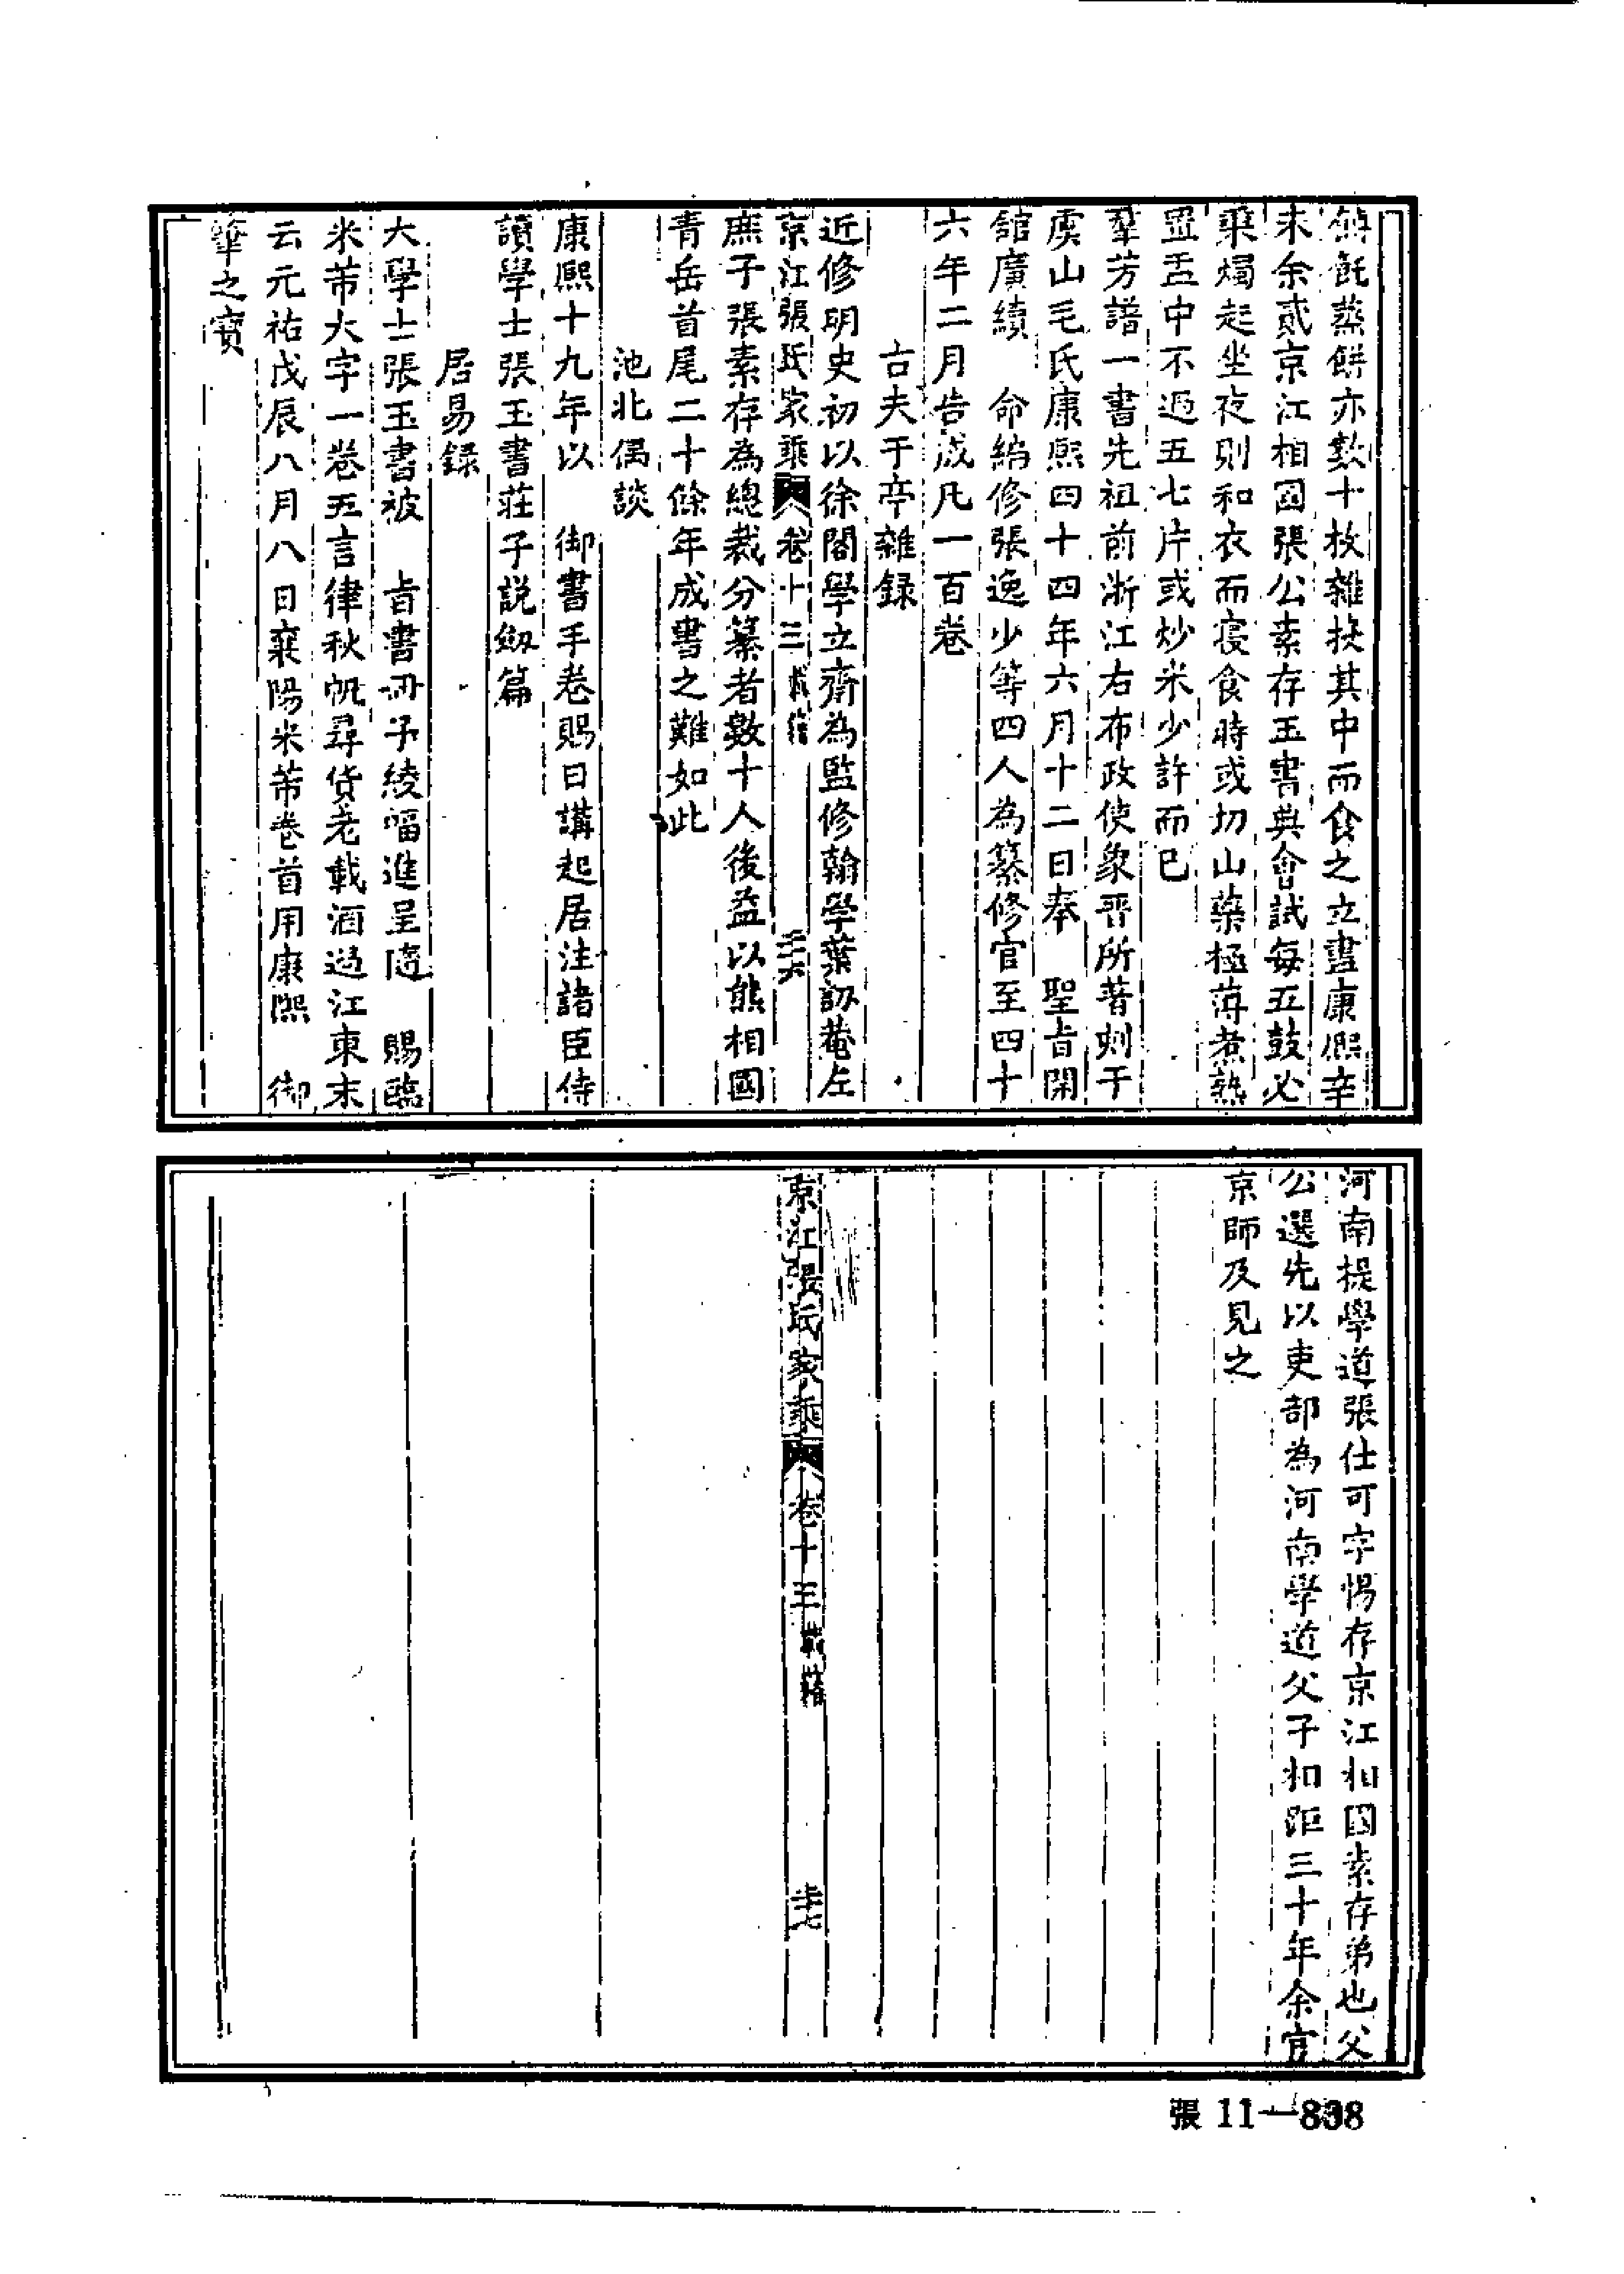 飥蒸餅亦數十枚雜揳其中而食之立盡康熙辛
未余貳京江相國張公素存玉書典會試每五鼓必
秉燭起坐夜則和衣而寢食時或切山藥極薄煮熟
置盂中不過五七片或炒米少許而已
羣芳譜一書先祖前浙江右布政使象晋所著刻于
虞山毛氏康熙四十四年六月十二日奉　聖旨開
舘廣續　命編修張逸少等四人為纂修官至四十
六年二月告成凡一百卷
古夫于亭雜録
近修明史初以徐閣學立齋為監修翰學葉訒菴左
京江張氏家乘　卷十三　載籍　三十六
庶子張素存為總裁分纂者數十人後益以熊相國
青岳首尾二十餘年成書之難如此
池北偶談
康熙十九年以　御書手卷賜日講起居注諸臣侍
讀學士張玉書莊子説劔篇
居易録
大學士張玉書被　旨書冊子綾幅進呈隨　賜臨
米芾大字一卷五言律秋帆尋貨老載酒過江東末
云元祐戊辰八月八日襄陽米芾卷首用康熙　御
筆之寶
河南提學道張仕可字惕存京江相國素存弟也父
公選先以吏部為河南學道父子相距三十年余官
京師及見之
京江張氏家乘　卷十三　載籍　三十七
張 11—838